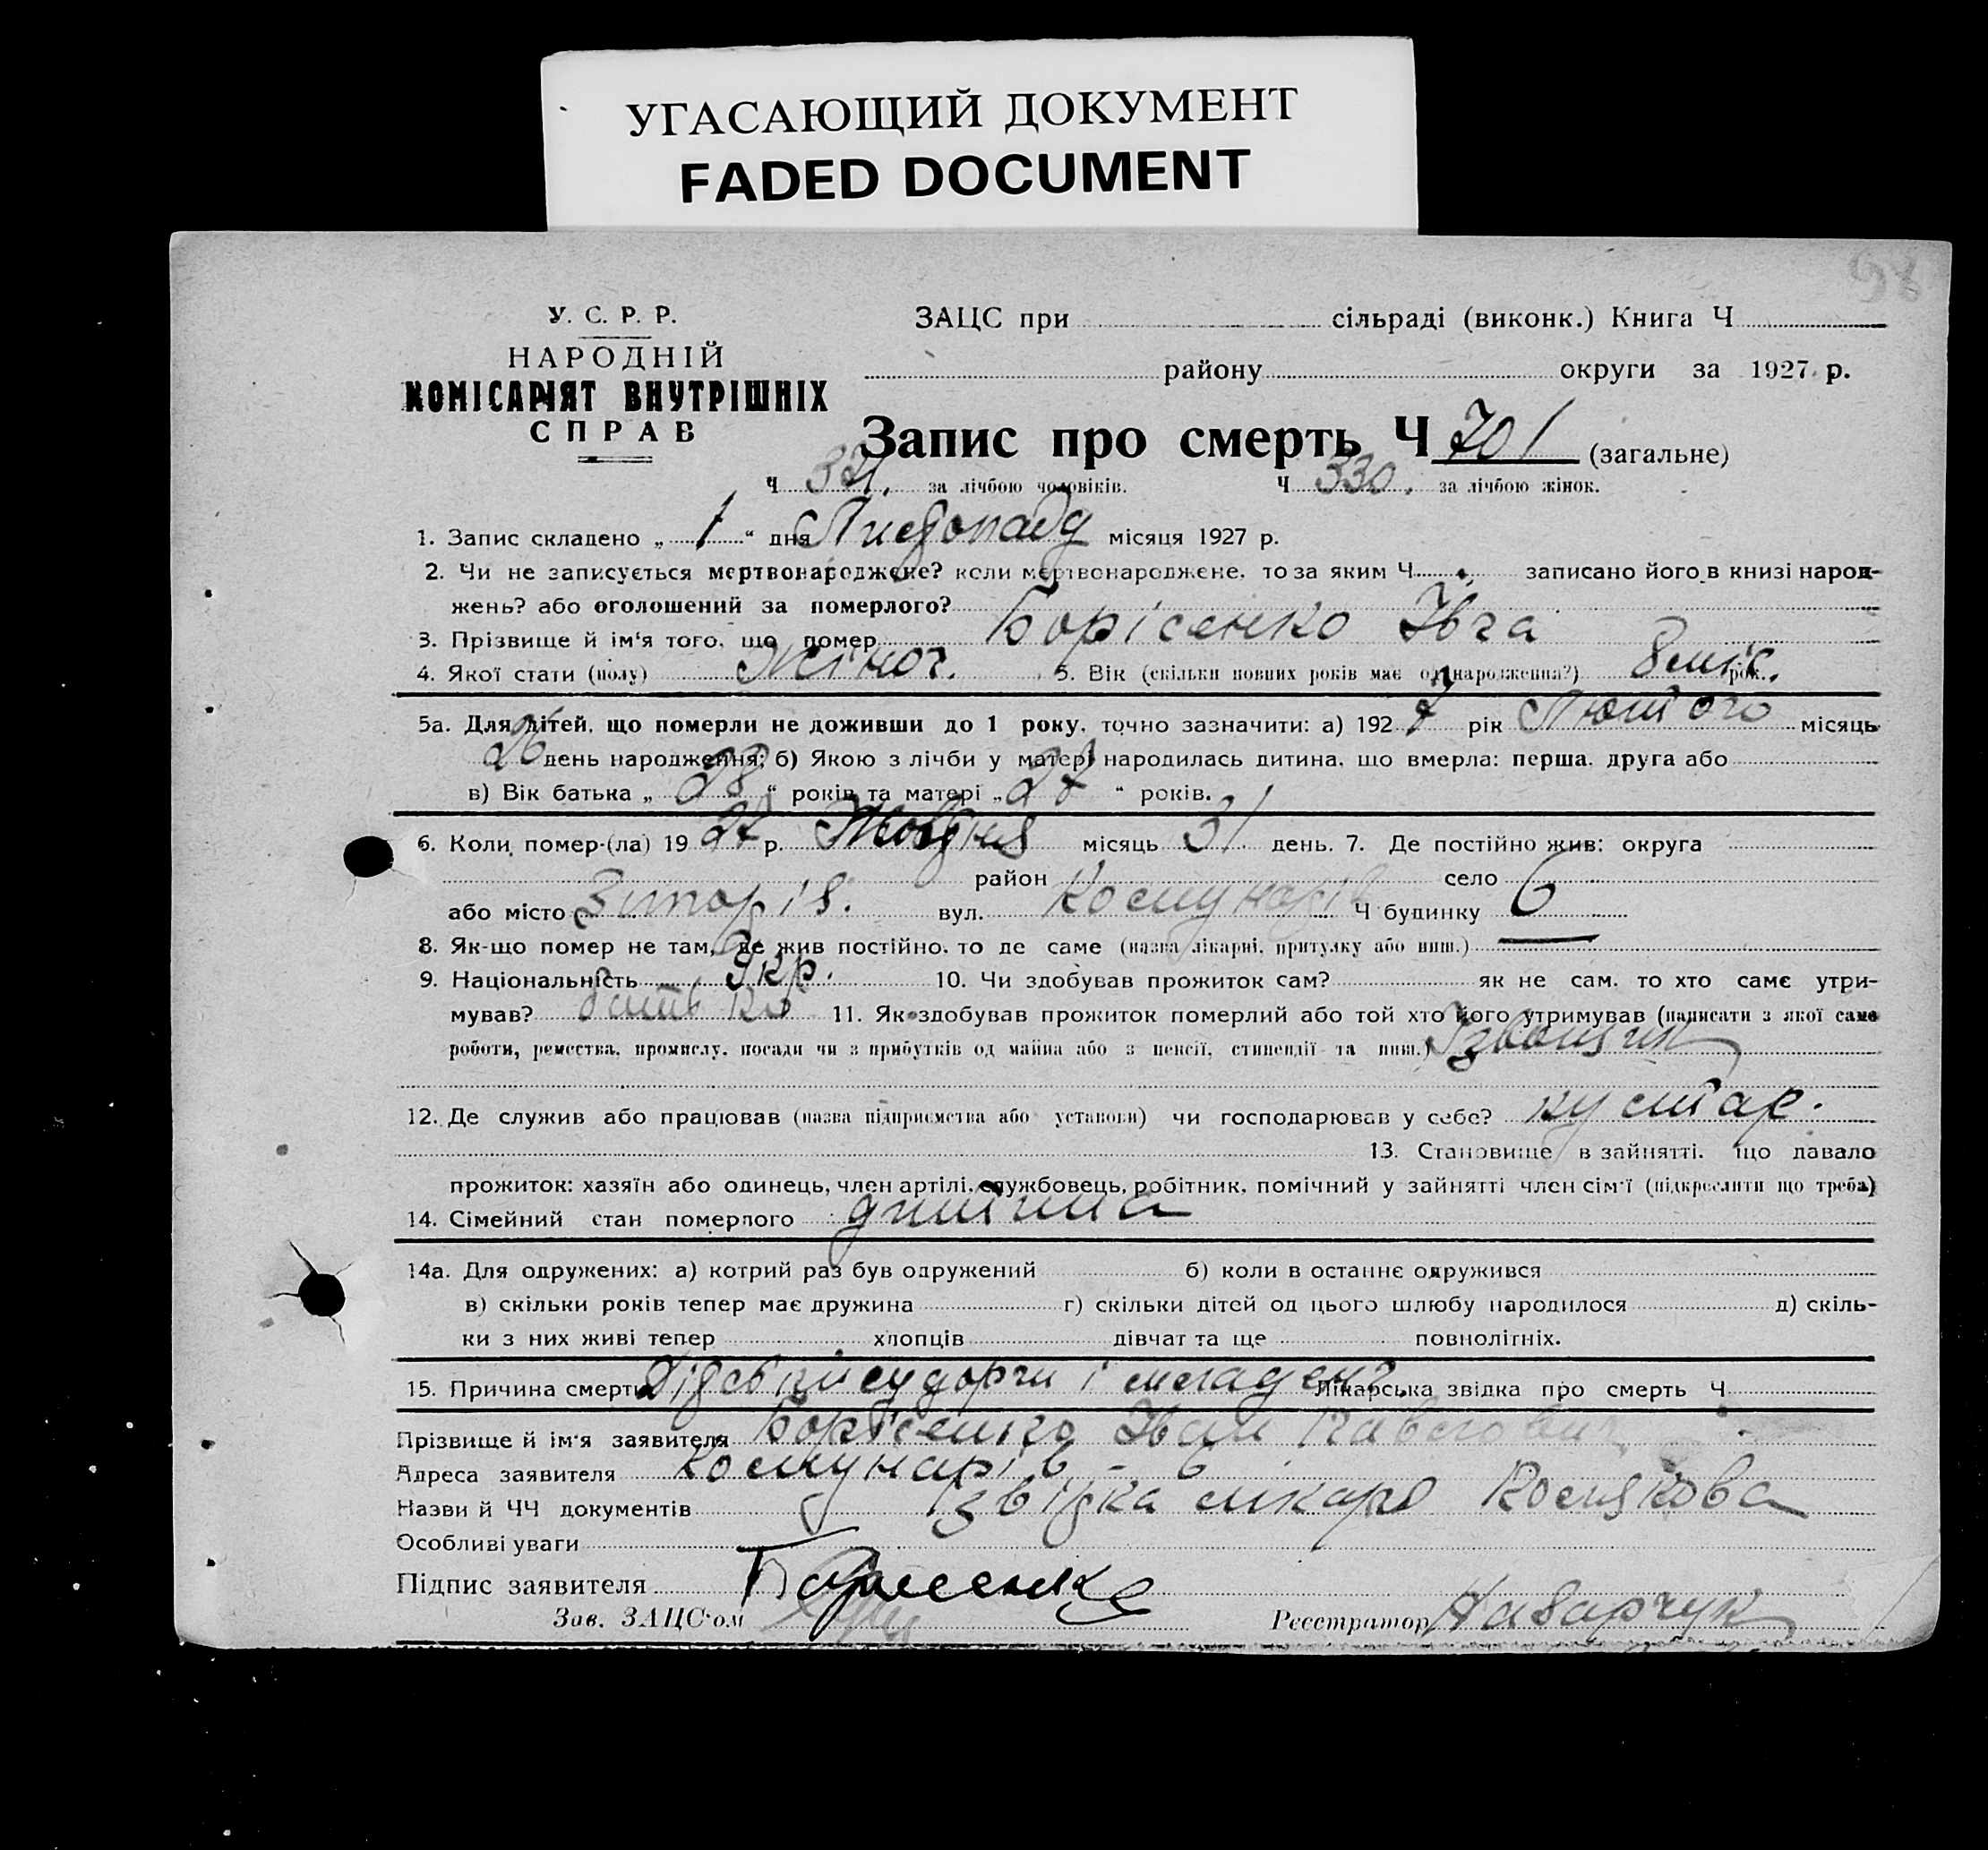 УГАСАЮЩИЙ ДОКУМЕНТ
FADED DOCUMENT
98
У. С. Р. Р.
НАРОДНІЙ
КОМІСАРІЯТ ВНУТРІШНІХ
СПРАВ
ЗАЦС при сільраді (виконк.) Книга Ч
району округи за 1927 р.
Запис про смерть Ч 701 (загальне)
Ч за лічбою чоловіків. Ч 330. за лічбою жінок.
1. Запис складено „ 1 “ дня Листопаду місяця 1927 р.
2. Чи не записується мертвонароджене? коли мертвонароджене, то за яким Ч. записано його в книзі народ-
жень? або оголошений за померлого?
3. Прізвище й ім'я того, що помер Борісенко Івга
4. Якої стати (полу) Жіноч. 5. Вік (скільки повних років має од народження?) 8 міс. рок.
5а. Для дітей, що померли не доживши до 1 року, точно зазначити: а) 1927 рік Лютого місяць
26 день народження; б) Якою з лічби у матері народилась дитина, що вмерла: перша, друга або
в) Вік батька „ 28 “ років та матері „ 27 “ років.
6. Коли помер-(ла) 1927 р. Жовтня місяць 31 день. 7. Де постійно жив: округа
район село
або місто вул. Комунарів Ч будинку 6
8. Як-що помер не там, де жив постійно, то де саме (назва лікарні, притулку або инш.)
9. Національність Укр. 10. Чи здобував прожиток сам? як не сам, то хто саме утри-
мував? батько 11. Як здобував прожиток померлий або той хто його утримував (написати з якої саме
роботи, ремества, промислу, посади чи з прибутків од майна або з пенсії, стипендії та инш.) Ізвощик
12. Де служив або працював (назва підприємства або установи) чи господарював у себе? кустар.
13. Становище в зайнятті, що давало
прожиток: хазяїн або одинець, член артілі, службовець, робітник, помічний у зайнятті член сім'ї (підкреслити що треба)
14. Сімейний стан померлого дитина
14а. Для одружених: а) котрий раз був одружений б) коли в останнє одружився
в) скільки років тепер має дружина г) скільки дітей од цього шлюбу народилося д) скіль-
ки з них живі тепер хлопців дівчат та ще повнолітніх.
15. Причина смерти судорги і младенч. Лікарська звідка про смерть Ч
Прізвище й ім'я заявителя Борісенко Іван Павлович
Адреса заявителя Комунарів - 6
Назви й ЧЧ документів Ізвідка лікаря
Особливі уваги
Підпис заявителя Борисенко
Зав. ЗАЦС'ом Реєстратор